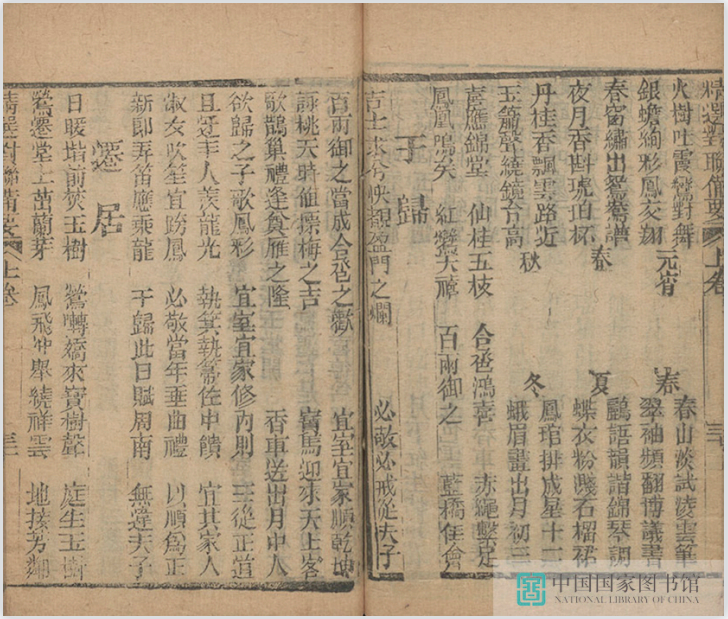 精選對聯備要 上卷 三
火樹吐霞鸞對舞 元宵 春 春山淡試凌雲筆
銀蟾絢彩鳳交翔 翠袖頻翻博議書
春窗繡出鴛鴦譜 春 夏 鸝語韻諧錦琴調
夜月香斟琥珀杯 蝶衣粉濺石榴裙
丹桂香飄雲路近 秋 冬 鳳琯排成星十二
玉簫聲繞鏡台高 蛾眉畫出月初三
喜應錦堂 仙桂五枝 合巹鴻喜 赤繩繫足
鳳凰鳴矣 紅鸞天禧 百兩御之 藍橋佳會
于歸
吉士求兮快覩盈門之爛 必敬必戒從夫子
百兩御之當成合巹之歡 宜室宜家順乾坤
詠桃夭時值摽梅之吉 寶馬迎來天上客
歌鵲巢禮逢奠雁之隆 香車送出月中人
欲歸之子歌鳳彩 宜室宜家修內則 三從正道
且迓丰人羨龍光 執箕執箒佐中饋 宜其家人
淑女吹笙宜跨鳳 必敬當年垂曲禮 以順為正
新郎弄笛應乘龍 于歸此日賦周南 無違夫子
遷居
日暖堦前茁玉樹 鶯囀喬來寶樹聲 庭生玉樹
鶯遷堂上茁蘭芽 鳳飛冲舉繞祥雲 地接芳鄰
精選對聯備要 上卷 三
中国国家图书馆
NATIONAL LIBRARY OF CHINA